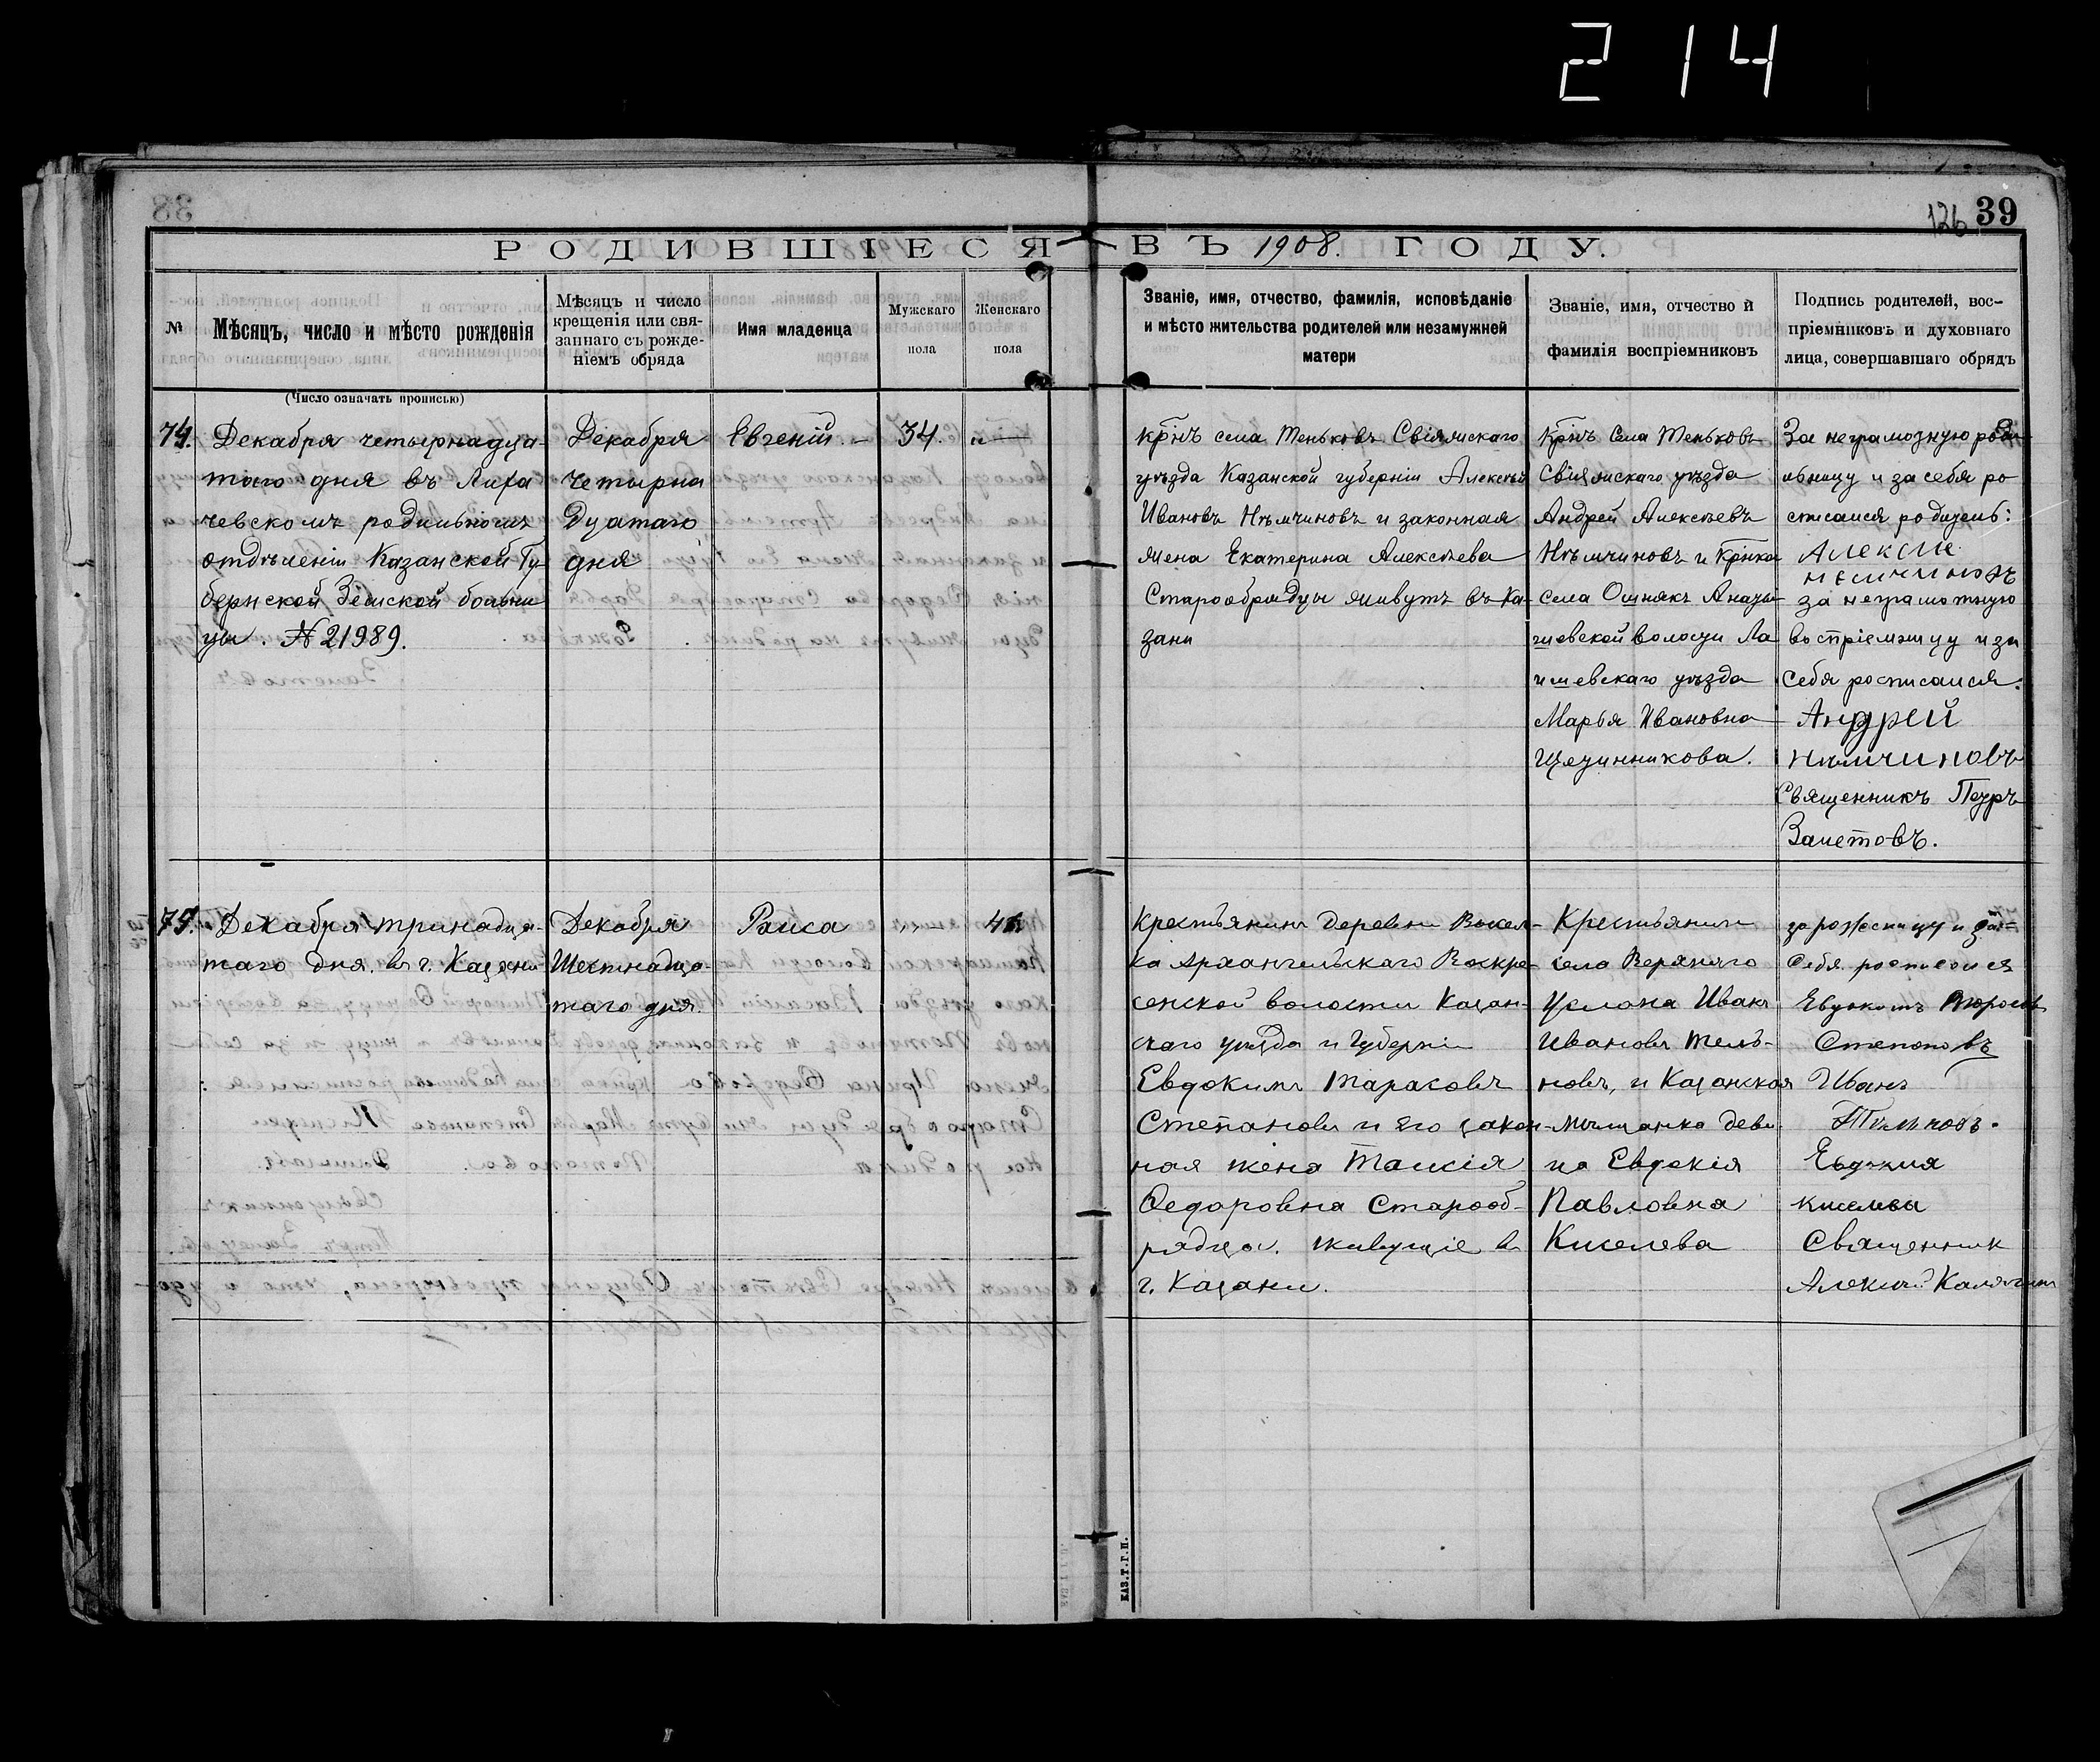 214
126 39
РОДИВШІЕСЯ ВЪ 1908. ГОДУ.
№
Мѣсяцъ, число и мѣсто рожденія
Мѣсяцъ и число
крещенія или свя-
заннаго съ рожде-
ніемъ обряда
Имя младенца
Мужскаго
пола
Женскаго
пола
Званіе, имя, отчество, фамилія, исповѣданіе
и мѣсто жительства родителей или незамужней
матери
Званіе, имя, отчество и
фамилія воспріемниковъ
Подпись родителей, вос-
пріемниковъ и духовнаго
лица, совершавшаго обрядъ
(Число означать прописью)
74.
Декабря четырнадца-
таго дня въ Лиха
чевскомъ родильномъ
отдѣленіи Казанской Гу
бернской Земской больни
цы. № 21989.
Декабря
четырна
дцатаго
дня
Евгеній. –
34.
"—
крнъ села Теньковъ Свіяжскаго
уѣзда Казанской губерніи Алексѣй
Ивановъ Нѣмчиновъ и законная
жена Екатерина Алексѣева
Старообрядцы живутъ въ Ка-
зани
Крнъ Села Теньковъ
Свіяжскаго уѣзда
Андрей Алексѣевъ
Нѣмчиновъ и Крнка
села Ошнякъ
волости Ла
ишевскаго уѣзда
Марья Ивановна
Щетинникова.
За неграмотную роди
льницу и за себя ро
списался родитель:
Алексѣй
немчиновъ
за неграмотную
воспріемницу и за
себя росписался:
Андрей
Нѣмчиновъ
Священникъ Петръ
Залетовъ.
75.
Декабря тринадца-
таго дня. въ г. Казани
Декабря
Шестнадца-
таго дня.
Раиса
"
41
Крестьянинъ деревни Высел-
ка Архангельскаго Воскре-
сенской волости Казан-
скаго уѣзда и Губерніи
Евдокимъ Тарасовъ
Степановъ и его закон-
ная жена Таисія
Ѳедоровна Старооб-
рядцы. живущіе въ
г. Казани.
Крестьянинъ
села Верхняго
Услона Иванъ
Ивановъ Тель-
новъ, и Казанская
мѣщанка деви-
ца Евдокія
Павловна
Киселева
за роженицу и за
Себя росписался
Евдокимъ
Степановъ
Иванъ
Евдокия
киселева
Священник
Алексѣй Калягинъ
КАЗ.Т.Г.П.